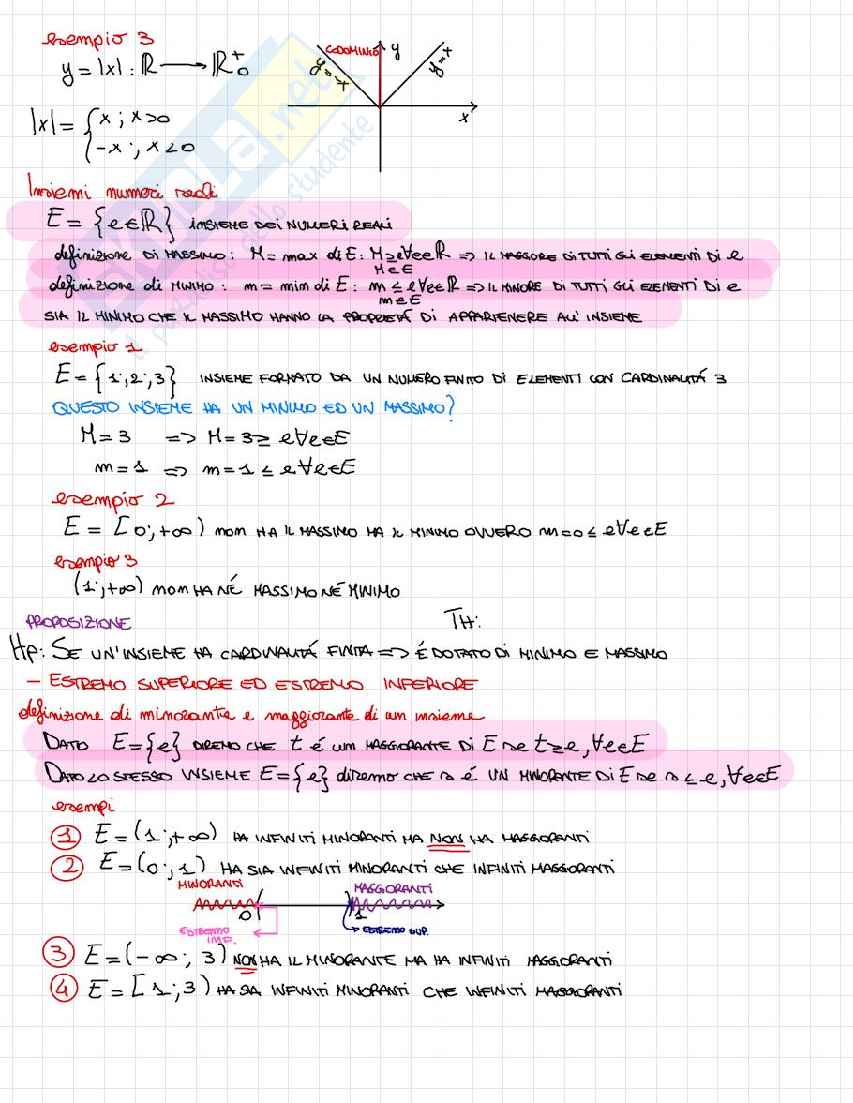 esempio 3
y = |x| : ℝ ⟶ ℝ₀⁺
CODOMINIO
y
y=-x
y=x
x
|x| = { x ; x>0
-x ; x<0
Insiemi numeri reali
E = {e∈ℝ} INSIEME DEI NUMERI REALI
definizione DI MASSIMO: M = max di E : M≥e∀e∈ℝ => IL MAGGIORE DI TUTTI GLI ELEMENTI DI e
M∈E
definizione di MINIMO: m = min di E : m≤e∀e∈ℝ => IL MINORE DI TUTTI GLI ELEMENTI DI e
m∈E
SIA IL MINIMO CHE IL MASSIMO HANNO LA PROPRIETÁ DI APPARTENERE ALL'INSIEME
esempio 1
E = {1;2;3} INSIEME FORMATO DA UN NUMERO FINITO DI ELEMENTI CON CARDINALITÁ 3
QUESTO INSIEME HA UN MINIMO ED UN MASSIMO?
M=3 => M=3≥e∀e∈E
m=1 => m=1≤e∀e∈E
esempio 2
E = [0;+∞) non HA IL MASSIMO MA IL MINIMO OVVERO m=0≤e∀e∈E
esempio 3
(1;+∞) non HA NÉ MASSIMO NÉ MINIMO
PROPOSIZIONE TH:
Hp: SE UN'INSIEME HA CARDINALITÁ FINITA => É DOTATO DI MINIMO E MASSIMO
- ESTREMO SUPERIORE ED ESTREMO INFERIORE
definizione di minorante e maggiorante di un insieme
DATO E={e} DIREMO CHE t é UN MAGGIORANTE DI E se t≥e,∀e∈E
DATO LO STESSO INSIEME E={e} diremo CHE s é UN MINORANTE DI E se s≤e,∀e∈E
esempi
① E=(1;+∞) HA INFINITI MINORANTI MA NON HA MAGGIORANTI
② E=(0;1) HA SIA INFINITI MINORANTI CHE INFINITI MAGGIORANTI
MINORANTI MAGGIORANTI
0 1
ESTREMO INF. ESTREMO SUP.
③ E=(-∞; 3) NON HA IL MINORANTE MA HA INFINITI MAGGIORANTI
④ E=[1;3) HA SIA INFINITI MINORANTI CHE INFINITI MAGGIORANTI
SKUOLA.net
il paradiso dello studente